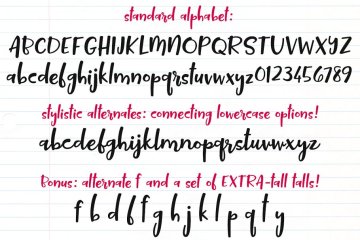 standard alphabet:
ABCDEFGHIJKLMNOPQRSTUVWXYZ
abcdefghijklmnopqrstuvwxyz0123456789
stylistic alternates: connecting lowercase options!
abcdefghijklmnopqrstuvwxyz
Bonus: alternate f and a set of EXTRA-tall talls!
f b d f g h j k l p q t y